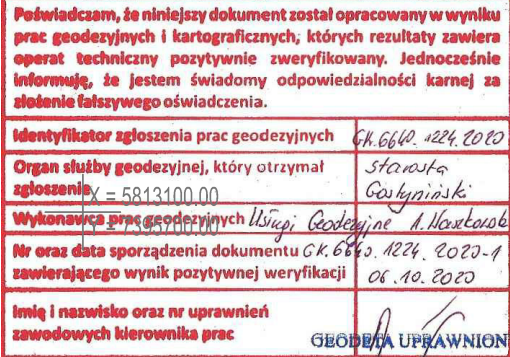 Poświadczam, że niniejszy dokument został opracowany w wyniku
prac geodezyjnych i kartograficznych, których rezultaty zawiera
operat techniczny pozytywnie zweryfikowany. Jednocześnie
informuję, że jestem świadomy odpowiedzialności karnej za
złożenie fałszywego oświadczenia.
Identyfikator zgłoszenia prac geodezyjnych GK.6640.1224.2020
Organ służby geodezyjnej, który otrzymał zgłoszenie
Starosta
Gostyniński
X = 5813100.00
Wykonawca prac geodezyjnych Usługi Geodezyjne A.
Y = 7395700.00
Nr oraz data sporządzenia dokumentu GK.6640.1224.2020-1
zawierającego wynik pozytywnej weryfikacji 06.10.2020
Imię i nazwisko oraz nr uprawnień
zawodowych kierownika prac
GEODETA UPRAWNION